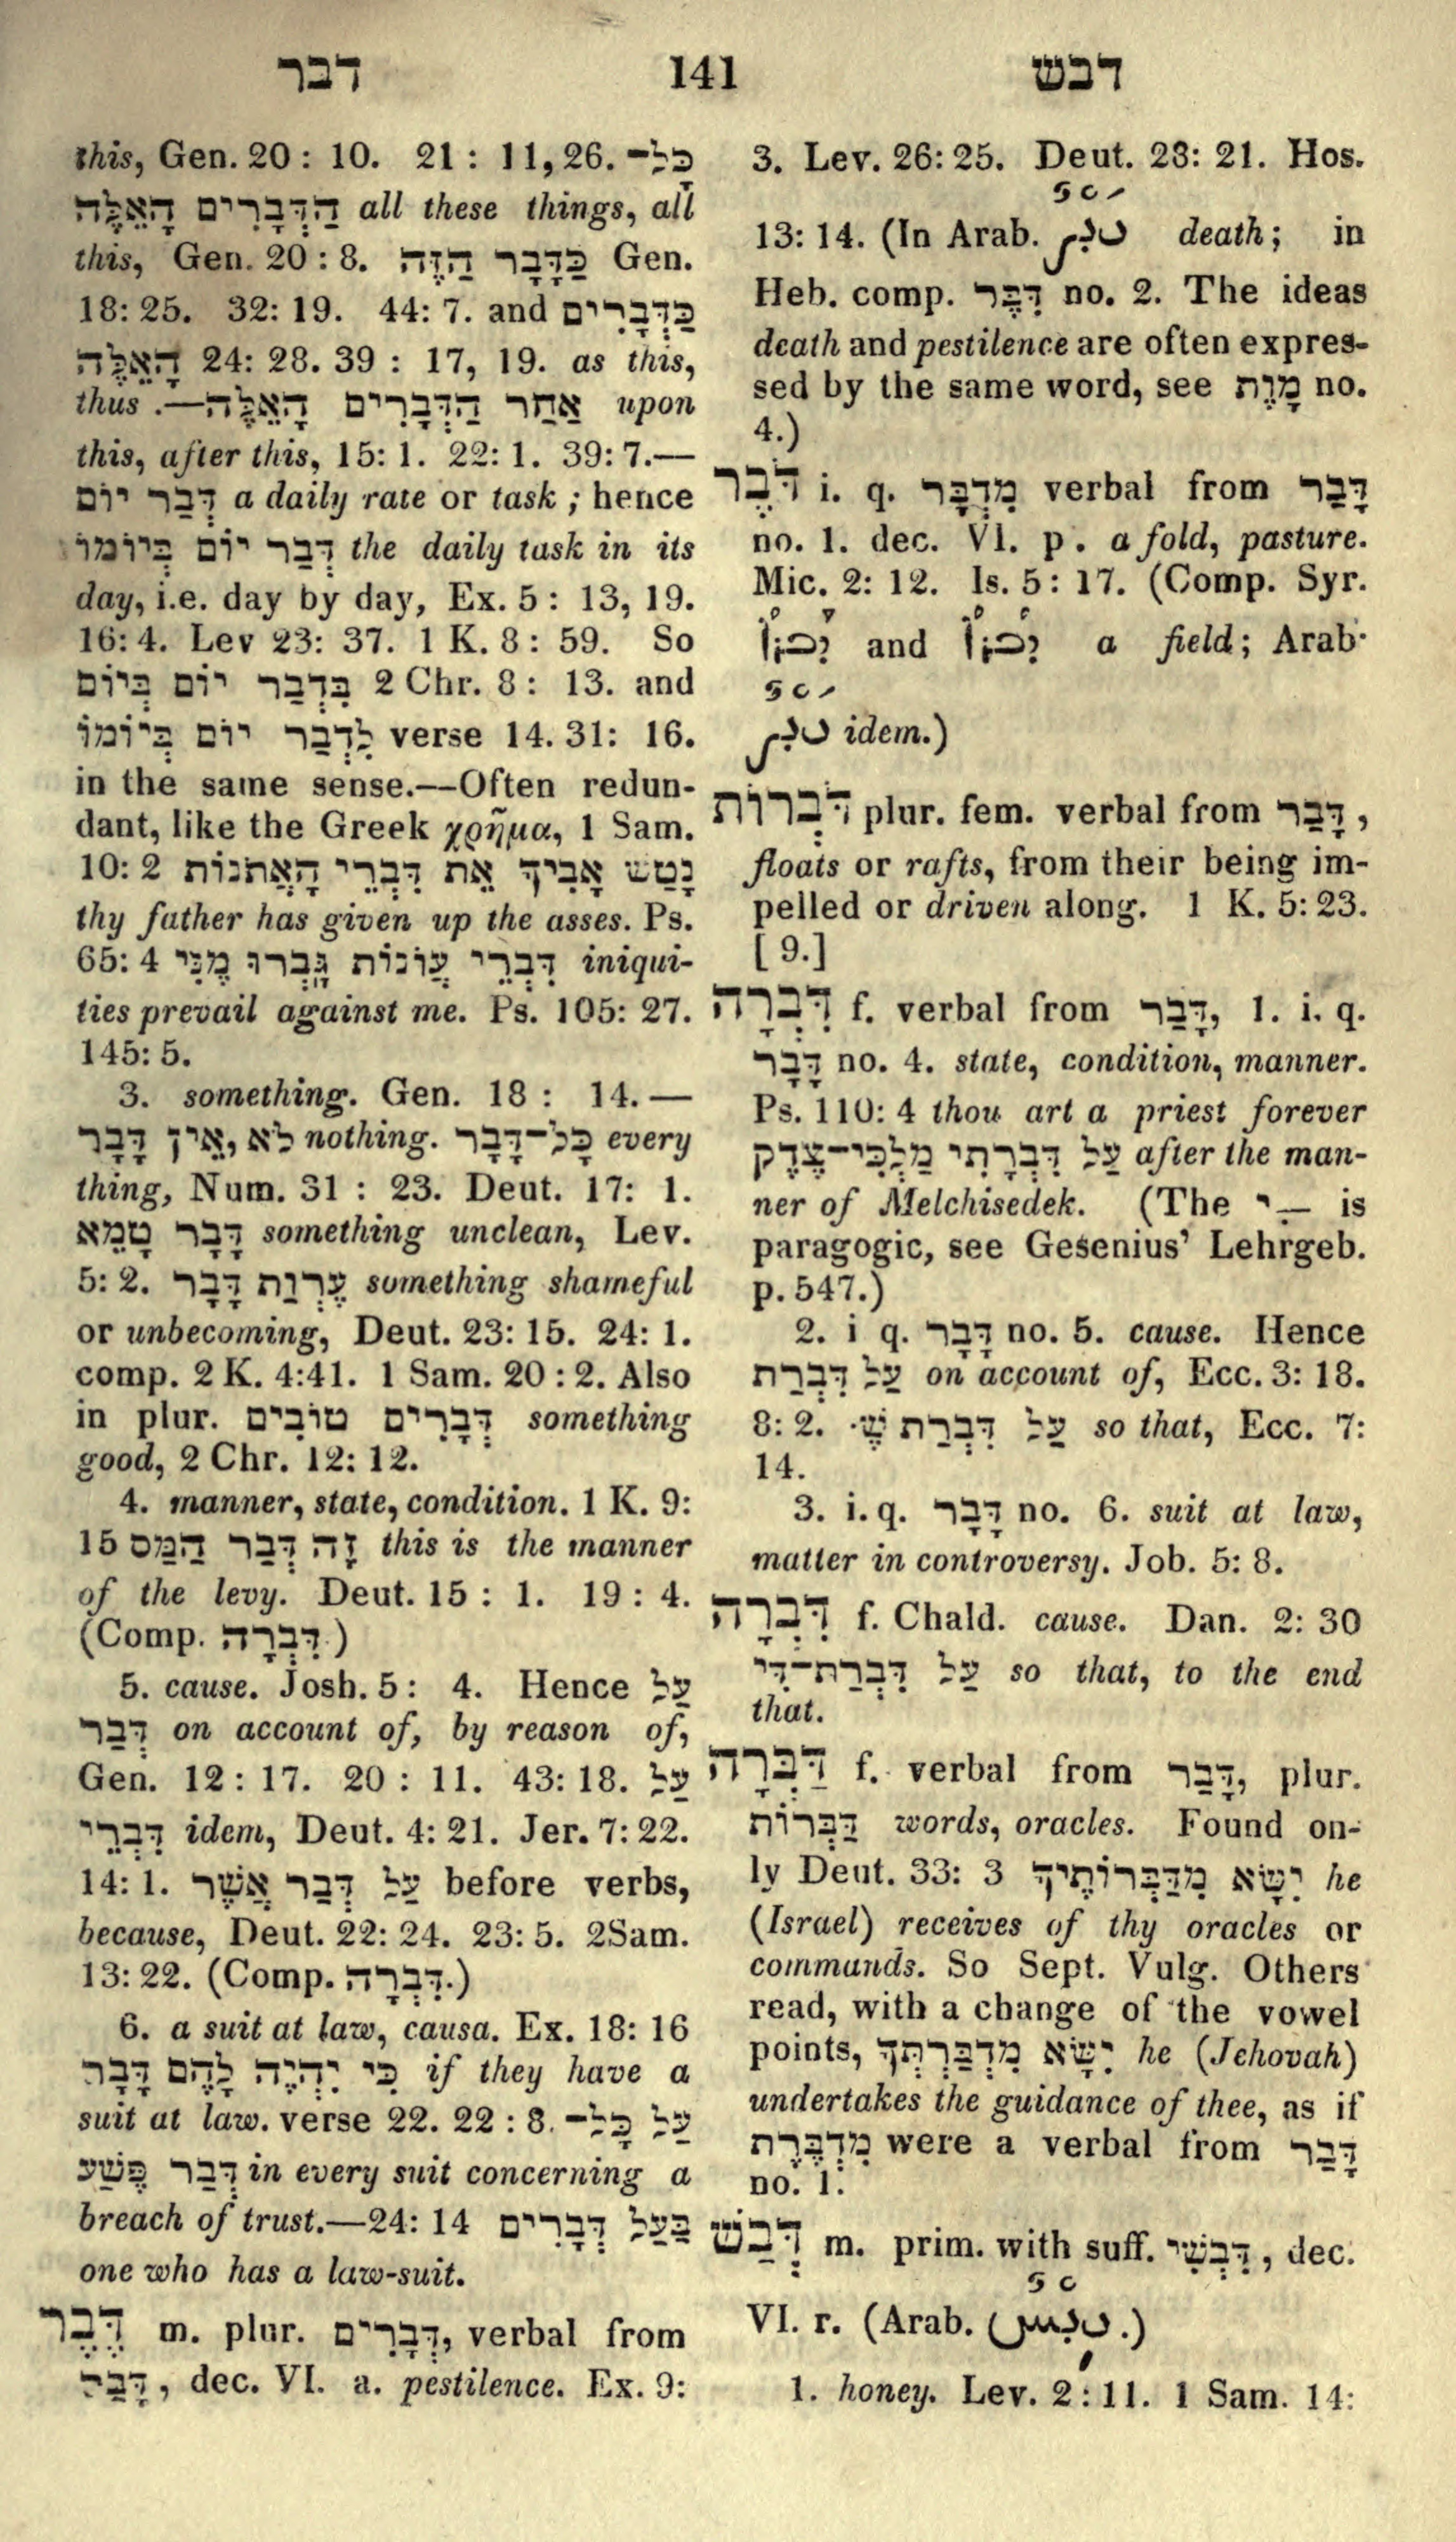 דבר 141 דבש
this, Gen. 20 : 10. 21 : 11, 26. כָּל־
הַדְּבָרִים הָאֵלֶּה all these things, all
this, Gen. 20 : 8. כַּדָּבָר הַזֶּה Gen.
18: 25. 32: 19. 44: 7. and כַּדְּבָרִים
הָאֵלֶּה 24: 28. 39 : 17, 19. as this,
thus.—אַחַר הַדְּבָרִים הָאֵלֶּה upon
this, after this, 15: 1. 22: 1. 39: 7.—
דְּבַר יוֹם a daily rate or task ; hence
דְּבַר יוֹם בְּיוֹמוֹ the daily task in its
day, i.e. day by day, Ex. 5 : 13, 19.
16: 4. Lev 23: 37. 1 K. 8 : 59. So
בִּדְבַר יוֹם בְּיוֹם 2 Chr. 8 : 13. and
לִדְבַר יוֹם בְּיוֹמוֹ verse 14. 31: 16.
in the same sense.—Often redun-
dant, like the Greek χρῆμα, 1 Sam.
10: 2 נָטַשׁ אָבִיךָ אֵת דִּבְרֵי הָאֲתֹנוֹת
thy father has given up the asses. Ps.
65: 4 דִּבְרֵי עֲוֹנוֹת גָּבְרוּ מֶנִּי iniqui-
ties prevail against me. Ps. 105: 27.
145: 5.
3. something. Gen. 18 : 14. —
לֹא, אֵין דָּבָר nothing. כָּל־דָּבָר every
thing, Num. 31 : 23. Deut. 17: 1.
דָּבָר טָמֵא something unclean, Lev.
5: 2. עֶרְוַת דָּבָר something shameful
or unbecoming, Deut. 23: 15. 24: 1.
comp. 2 K. 4:41. 1 Sam. 20 : 2. Also
in plur. דְּבָרִים טוֹבִים something
good, 2 Chr. 12: 12.
4. manner, state, condition. 1 K. 9:
15 זֶה דְּבַר הַמַּס this is the manner
of the levy. Deut. 15 : 1. 19 : 4.
(Comp. דִּבְרָה.)
5. cause. Josh. 5 : 4. Hence עַל
דְּבַר on account of, by reason of,
Gen. 12 : 17. 20 : 11. 43: 18. עַל
דִּבְרֵי idem, Deut. 4: 21. Jer. 7: 22.
14: 1. עַל דְּבַר אֲשֶׁר before verbs,
because, Deut. 22: 24. 23: 5. 2Sam.
13: 22. (Comp. דִּבְרָה.)
6. a suit at law, causa. Ex. 18: 16
כִּי יִהְיֶה לָהֶם דָּבָר if they have a
suit at law. verse 22. 22 : 8. עַל כָּל־
דְּבַר פֶּשַׁע in every suit concerning a
breach of trust.—24: 14 בַּעַל דְּבָרִים
one who has a law-suit.
דֶּבֶר m. plur. דְּבָרִים, verbal from
דָּבַר, dec. VI. a. pestilence. Ex. 9:
3. Lev. 26: 25. Deut. 28: 21. Hos.
13: 14. (In Arab. دَبْرٌ death; in
Heb. comp. דִּבֶּר no. 2. The ideas
death and pestilence are often expres-
sed by the same word, see מָוֶת no.
4.)
דֹּבֶר i. q. מִדְבָּר verbal from דָּבַר
no. 1. dec. VI. p. a fold, pasture.
Mic. 2: 12. Is. 5 : 17. (Comp. Syr.
and a field; Arab·
دَبْرٌ idem.)
דֹּבְרוֹת plur. fem. verbal from דָּבַר,
floats or rafts, from their being im-
pelled or driven along. 1 K. 5: 23.
[ 9.]
דִּבְרָה f. verbal from דָּבַר, 1. i. q.
דָּבָר no. 4. state, condition, manner.
Ps. 110: 4 thou art a priest forever
עַל דִּבְרָתִי מַלְכִּי־צֶדֶק after the man-
ner of Melchisedek. (The ־ִי is
paragogic, see Gesenius' Lehrgeb.
p. 547.)
2. i q. דָּבָר no. 5. cause. Hence
עַל דִּבְרַת on account of, Ecc. 3: 18.
8: 2. עַל דִּבְרַת שֶׁ so that, Ecc. 7:
14.
3. i. q. דָּבָר no. 6. suit at law,
matter in controversy. Job. 5: 8.
דִּבְרָה f. Chald. cause. Dan. 2: 30
עַל דִּבְרַת־דִּי so that, to the end
that.
דַּבְּרָה f. verbal from דָּבַר, plur.
דַּבְּרוֹת words, oracles. Found on-
ly Deut. 33: 3 יִשָּׂא מִדַּבְּרוֹתֶיךָ he
(Israel) receives of thy oracles or
commands. So Sept. Vulg. Others
read, with a change of the vowel
points, יִשָּׂא מִדְבַּרְתְּךָ he (Jehovah)
undertakes the guidance of thee, as if
מִדְבֶּרֶת were a verbal from דָּבַר
no. 1.
דְּבַשׁ m. prim. with suff. דִּבְשִׁי, dec.
VI. r. (Arab. دِبْسٌ.)
1. honey. Lev. 2 : 11. 1 Sam. 14: